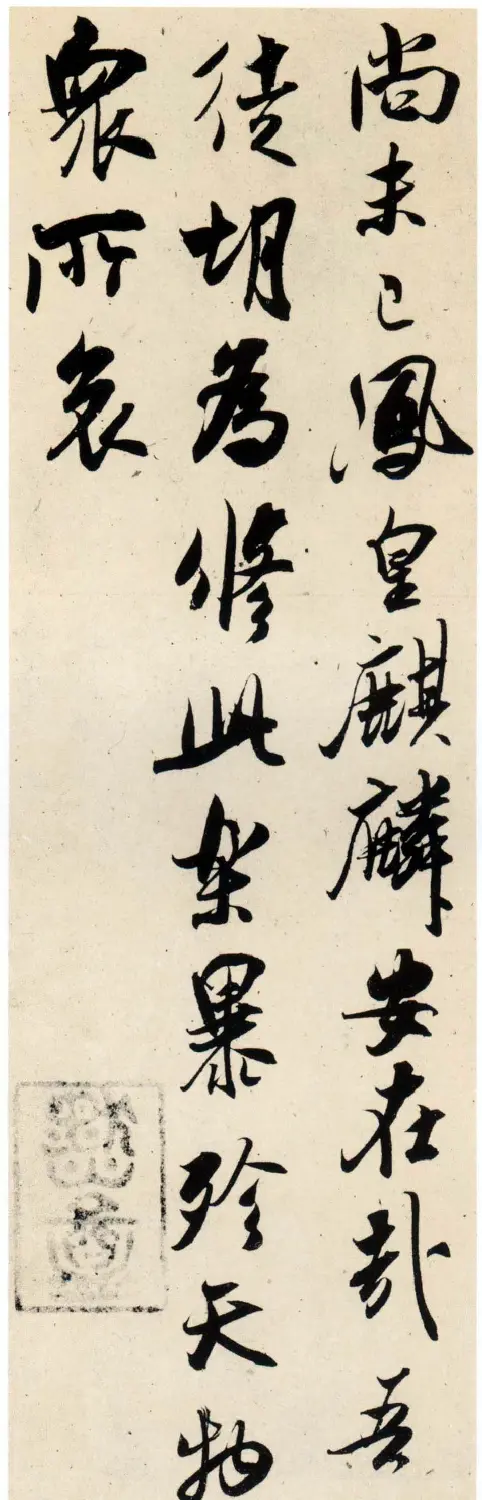 尚未已鳳皇麒麟安在哉吾
徒胡為修此樂暴殄天物
衆所哀